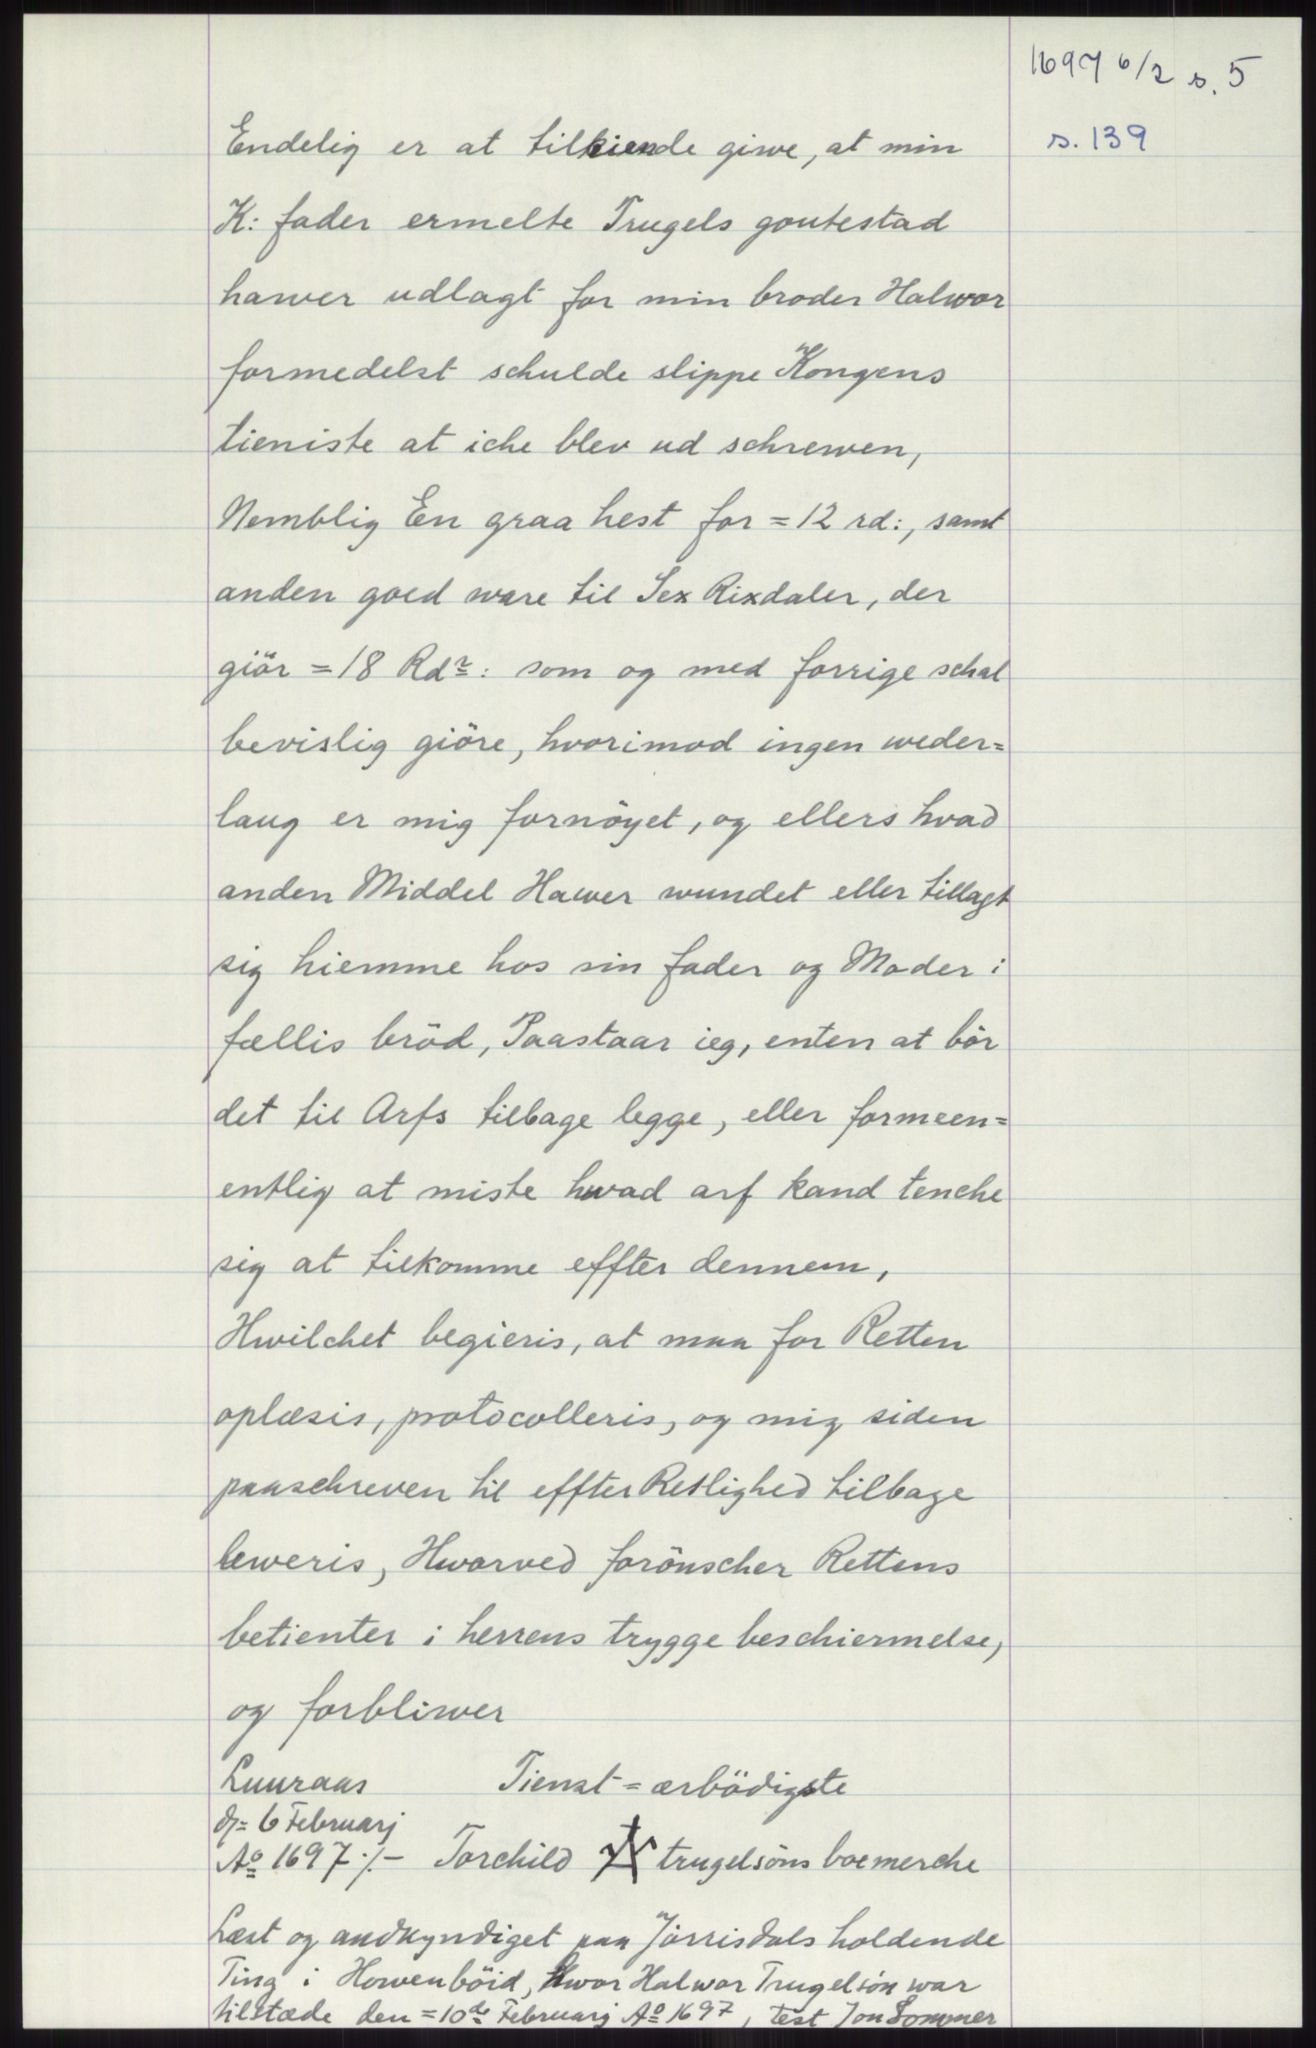 1697 6/2 s. 5
s. 139
Endelig er at tilkiende giwe, at min
K: fader ermelte Trugels goutestad
hawer udlagt for min broder Halwor
formedelst schulde slippe Kongens
tieniste at iche blev ud schrewen,
Nemblig En graa hest for = 12 rd:, samt
anden goed ware til Sex Rixdaler, der
giör = 18 Rdr: som og med forrige schal
bevislig giöre, hvorimod ingen weder=
laug er mig fornöyet, og ellers hvad
anden Middel Hawer wundet eller tillagt
sig hiemme hos sin fader og Moder i
fællis bröd, Paastaar ieg, enten at bör
det til Arfs tilbage legge, eller formeen=
entlig at miste hwad arf kand tenche
sig at tilkomme effter dennem,
Hwilchet begieris, at maa for Retten
oplæsis, protocolleris, og mig siden
paaschreven til effter Retlighed tilbage
leweris, Hworved forönscher Rettens
betienter i herrens trygge beschiermelse,
og forbliwer
Luuraas Tienst = ærbödigste
d= 6 Februarj
Ao 1697 ./. Torchild trugelsöns boemerche
Læst og andkyndiget paa Jörrisdals holdende
Ting i Howenböid, hwor Halwor Trugelsön war
tilstæde den = 10de Februarj Ao 1697, test Jon Sommer